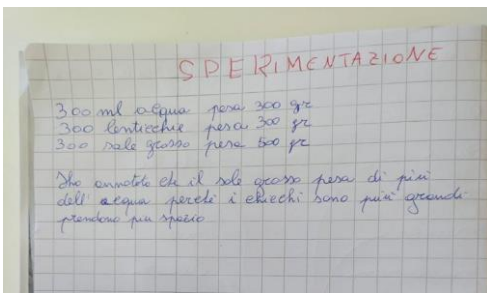 SPERIMENTAZIONE
300 ml acqua pesa 300 gr
300 lenticchie pesa 300 gr
300 sale grosso pesa 500 gr
Ho annotato che il sale grosso pesa di più
dell'acqua perché i chicchi sono più grandi
prendono più spazio